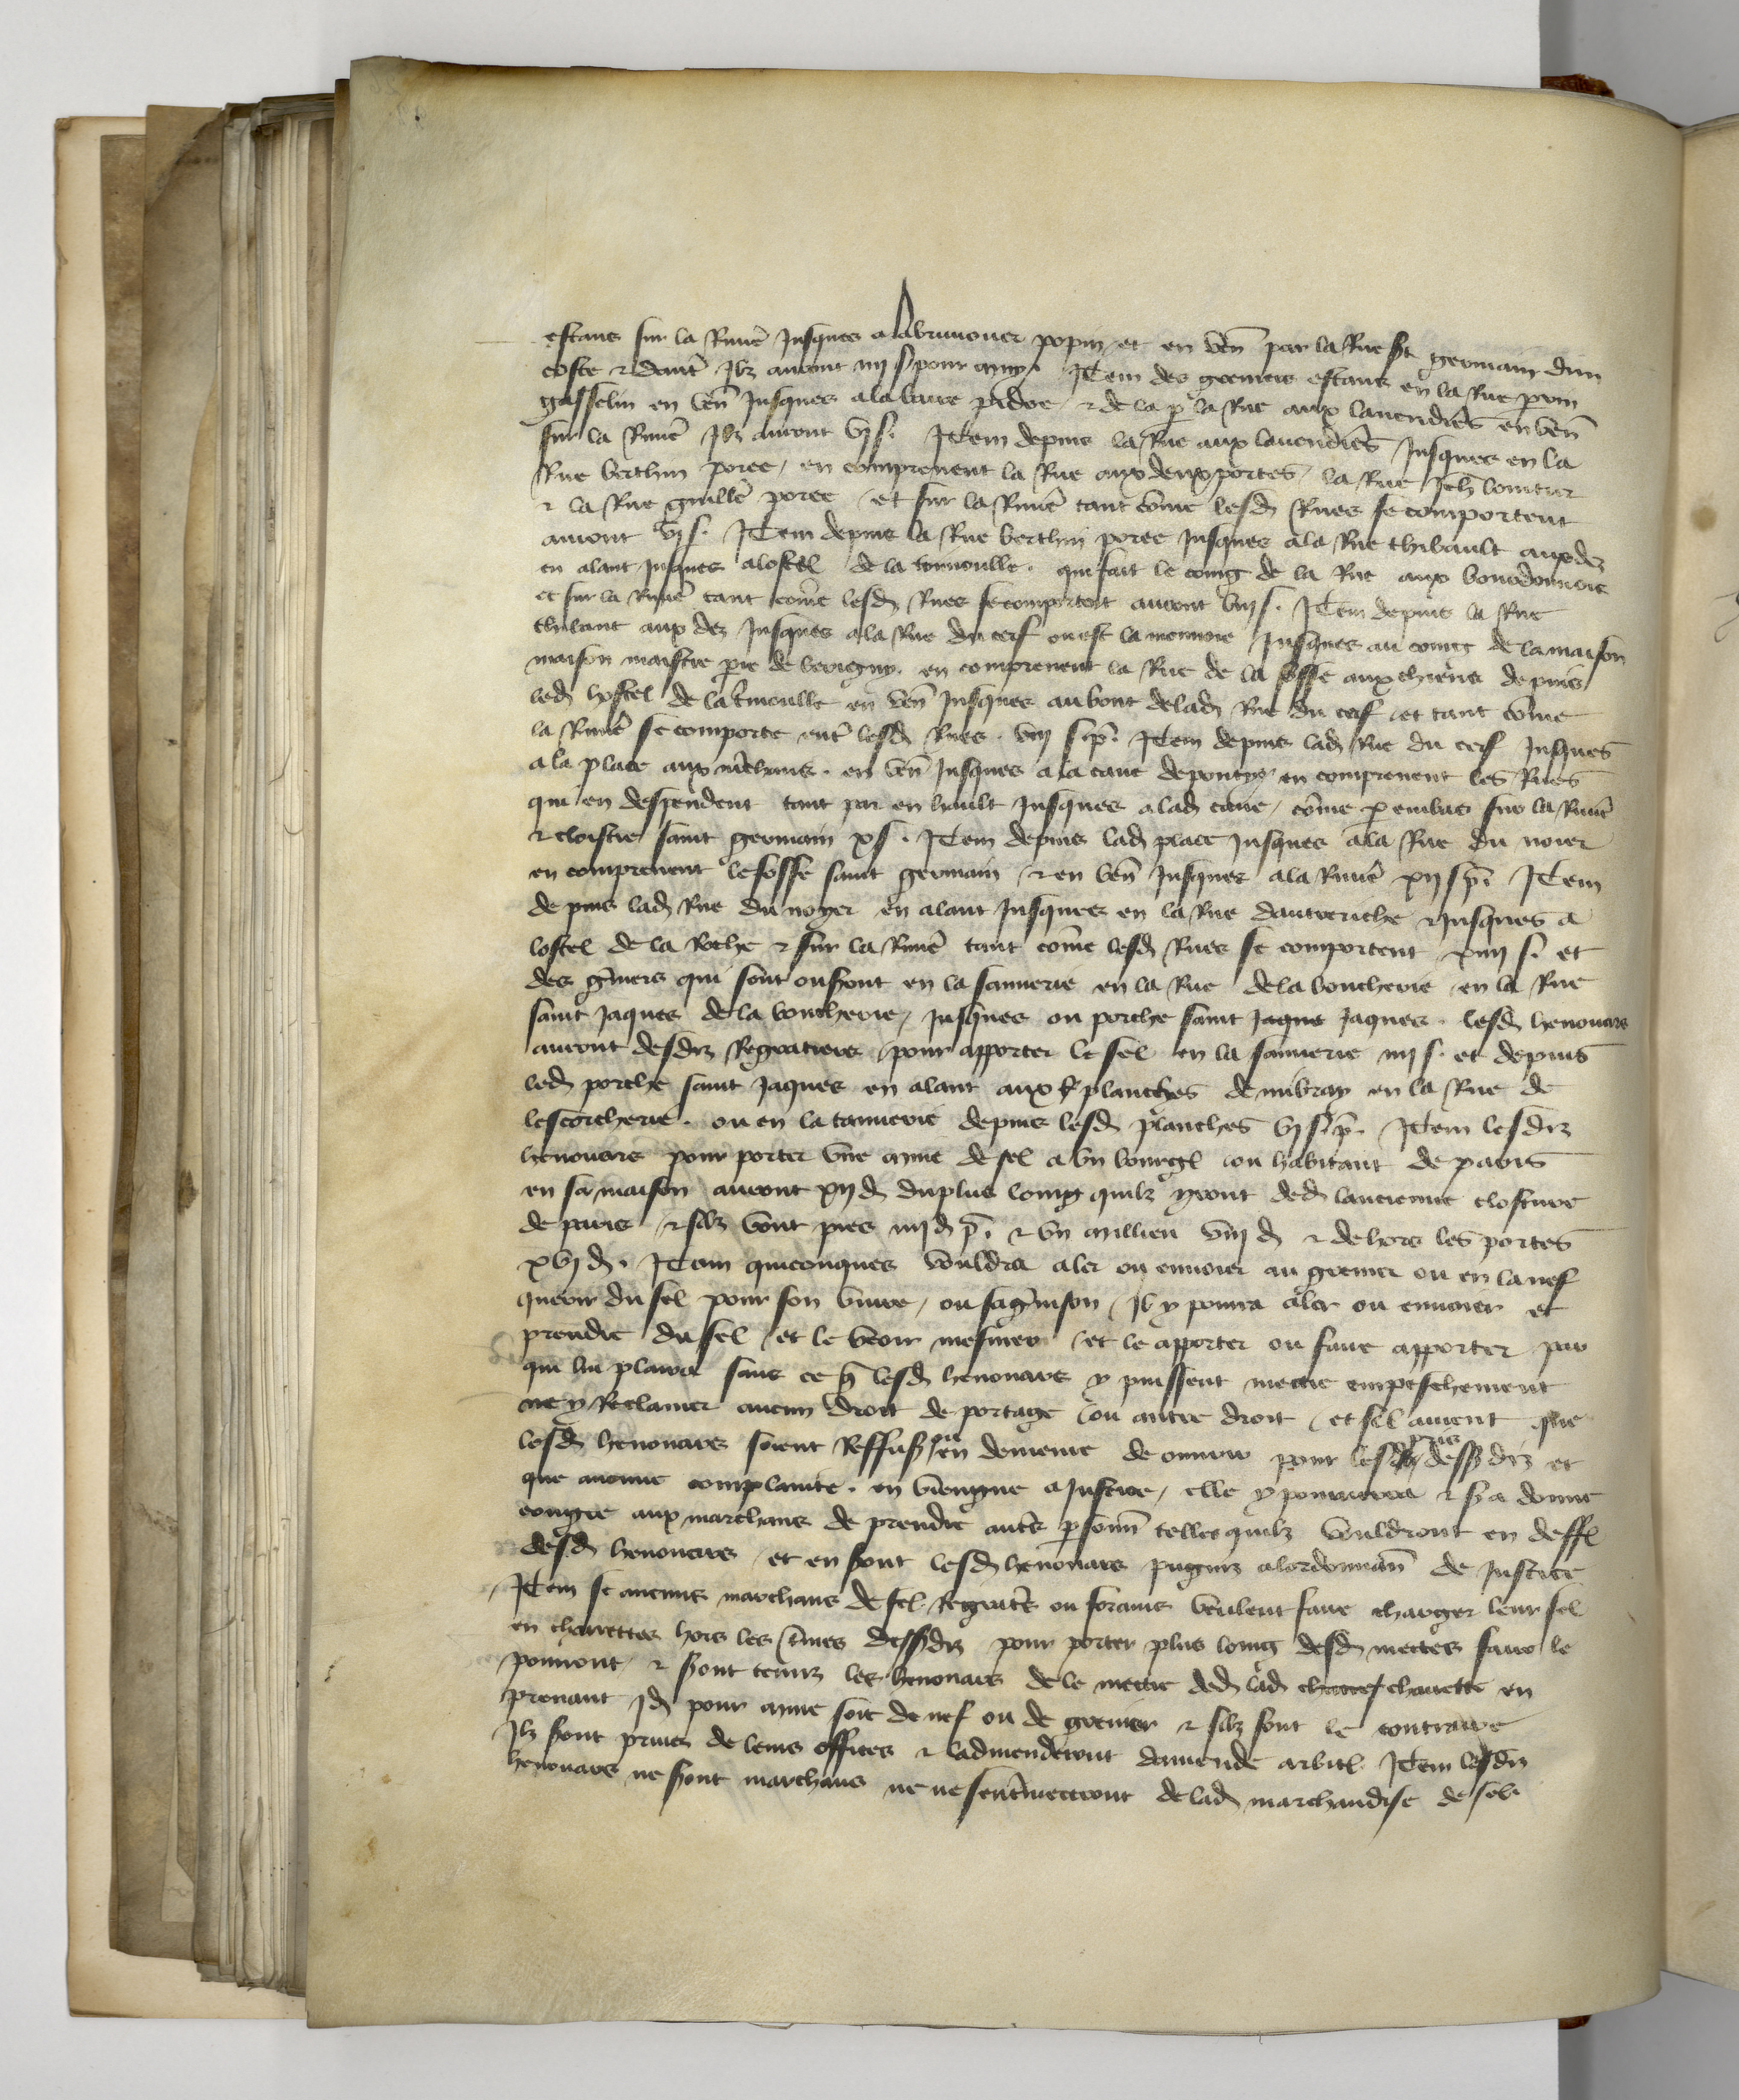 estans sur la Riuiẽ Jusques a labruuouer popin et en veñ par la Rue st germain dun
coste & daut͛ Ilz auront iiij s pour muy. Item des greniers estans en la Rue perrin
gasselin en veñ Jusques a la barre et de la p la Rue aux lauendieres en veñ
sur la Riuiẽ Ilz auront vj s. Item depuis la Rue aux lauendieres Jusques en la
Rue berthin poree / en comprenent la Rue aux deux portes / la Rue Jeh lointier
& la Rue guillẽ poree et sur la Riuiẽ tant cõme lesd Rues se comportent
auront vj s. Item depuis la Rue berthin poree Jusques a la Rue thibault aux dez
en alant Jusques a lostel de la tournoulle. qui fait le coing de la Rue aux bourdonnois
et sur la Riuiẽ tant cõme lesd Rues se comportent auront viij s. Item depuis la Rue
thibaut aux dez Jusques a la Rue du cerf ou est la monnoie Jusques au coing de la maison
maison maistre pre de breuigny. en comprenent la Rue de la fosse aux chiens depuis
led hostel de la tnoulle en veñ Jusques au bout de lad Rue du cerf et tant cõme
la Riuiẽ se comporte ent͛ lesd Rues. viij s p. Item depuis lad Rue du cerf Jusques
a la place aux marchans. en veñ Jusques a la caue de pontyz en comprenent les Rues
qui en despendent tant par en hault Jusques a lad caue / cõme p enbas sur la Riuiẽ
& cloistre saint germain x s. Item depuis lad place Jusques a la Rue du noier
en comprenent le fosse saint germain & en veñ Jusques a la Riuiẽ xij s p. Item
depuis lad Rue du noyer en alant Jusques en la Rue dauteriche & Jusques a
lostel de la Roche & sur la Riuiẽ tant cõme lesd Rues se comportent xiiij s. et
des gñiers qui sont ou seront en la saunerie en la Rue de la boucherie en la Rue
saint Jaques de la boucherie / Jusques ou porche saint Jaque Jaques. lesd henouars
auront desdiz Regratiers pour apporter le sel en la saunerie iiij s. et depuis
led porche saint Jaques en alant aux planches de mibray en la Rue de
lescorcherie. ou en la tannerie depuis lesd planches vj s p. Item lesdiz
henouars pour porter vne mine de sel a vn bourgs ou habitant de paris
en sa maison auront xij d du plus loing quilz yront ded lancienne closture
de paris / & silz vont pres iiij d p. & vn millieu viij d & dehors les portes
xvj d. Item quiconques vouldra aler ou enuoier au grenier ou en la nef
querir du sel pour son viure / ou sa gñison / Il y pourra aler ou enuoier et
prendre du sel / et le veoir mesurer / et le apporter ou faire apporter par
qui lui plaira sans ce q̃ lesd henouars y puissent mettre empeschement
ne y Reclamer aucun droit de portage / ou autre droit / et sil auient que
lesd henouars soient Reffus͛ ou en demeure de ouurer pour les pris dess diz et
que aucune complainte. en viengne a Justice / elle y pouruerra & sera donne
congie aux marchans de prendre aut͛s psonñ telles quilz vouldront en deff
desd henouars / et en seront lesd henouars pugniz a lordonnañ de Justice
Item se aucuns marchans de sel Regrat͛s ou forains veulent faire charger leur sel
en charrettes hors les t͛mes dessdiz pour porter plus loing desd mettes faire le
pourront / & seront tenuz les henouars de le mettre ded lad charrette en
prenant j d pour mine soit de nef ou de grenier & silz font le contraire
Ilz seront priuez de leurs offices & ladmenderont damende arbitͬ. Item lesdiz
henouars ne seront marchans ne ne sentremettront de lad marchandise de sel.